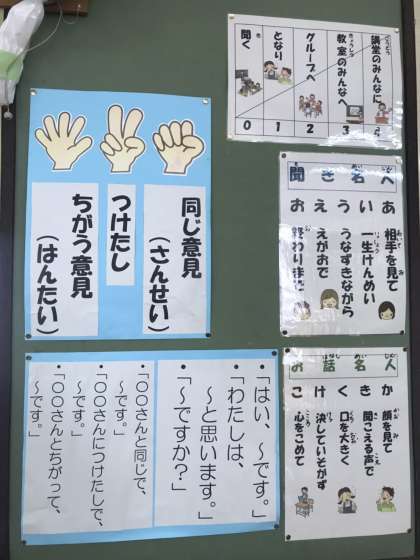 講堂のみんなに
教室のみんなへ
グループへ
となり
聞く
0 1 2 3 4
同じ意見
（さんせい）
つけたし
ちがう意見
（はんたい）
聞き名人
あ 相手を見て
い 一生けんめい
う うなずきながら
え えがおで
お 終わりまで
お話名人
か 顔を見て
き 聞こえる声で
く 口を大きく
け 決していそがず
こ 心をこめて
「はい、～です。」
「わたしは、
～と思います。」
「～ですか？」
・「〇〇さんと同じで、
～です。」
・「〇〇さんにつけたしで、
～です。」
・「〇〇さんとちがって、
～です。」